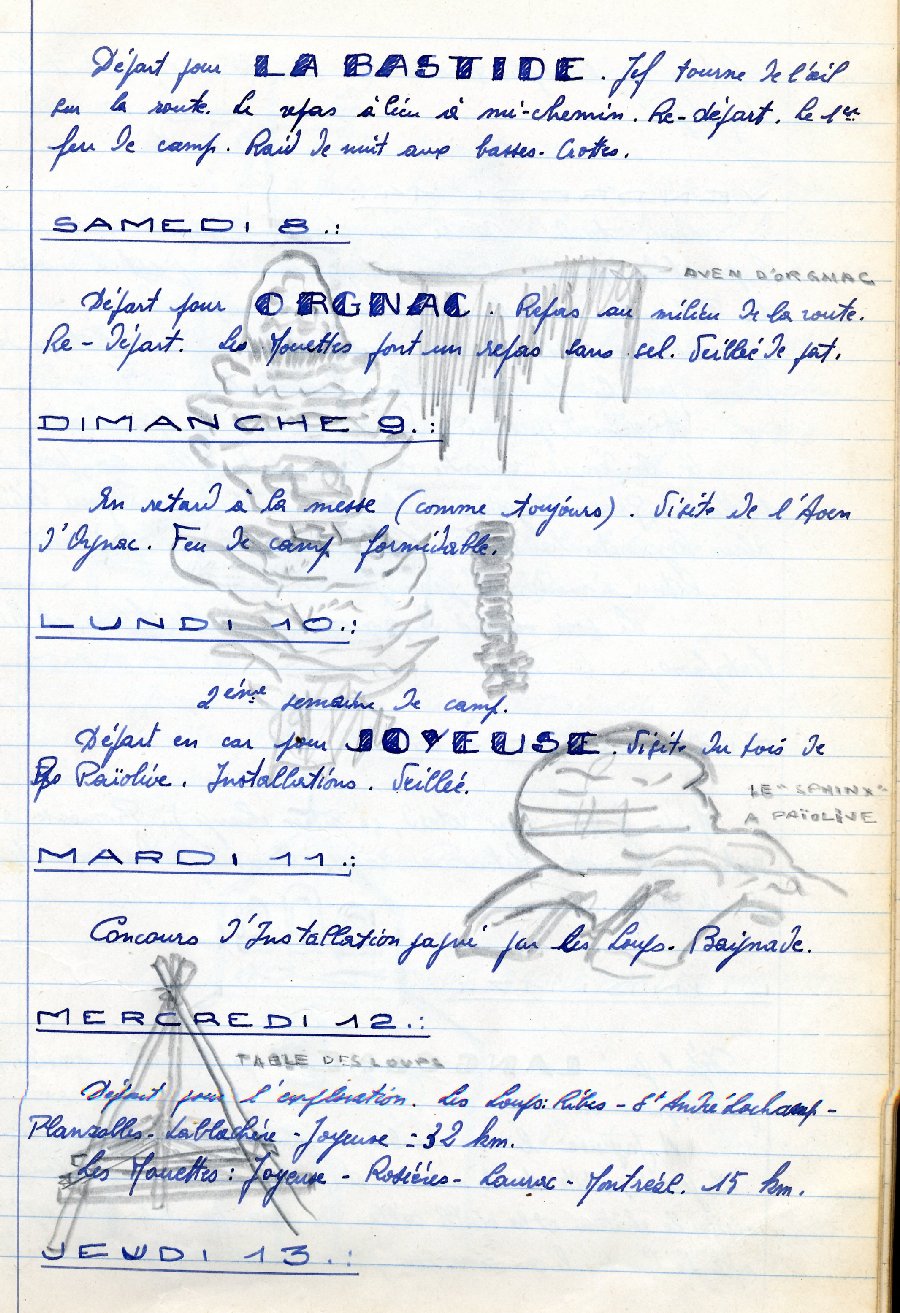 Départ pour LA BASTIDE. Jef tourne de l'œil
sur la route. Le repas à lieu à mi-chemin. Re-départ. Le 1er
feu de camp. Raid de nuit aux basses-Crottes.
SAMEDI 8.:
AVEN D'ORGNAC
Départ pour ORGNAC. Repas au milieu de la route.
Re-Départ. Les Mouettes font un repas sans sel. Veillée de pat.
DIMANCHE 9.:
En retard à la messe (comme toujours). Visite de l'Aven
d'Orgnac. Feu de camp formidable.
LUNDI 10.:
2ème semaine de camp.
Départ en car pour JOYEUSE. Visite du bois de
Païolive. Installations. Veillée.
LE "SPHINX"
A PAÏOLIVE
MARDI 11.:
Concours d'Installation gagné par les Loups. Baignade.
MERCREDI 12.:
TABLE DES LOUPS
Départ pour l'exploration. Les Loups: Ribes - St André Lachamp -
Planzolles - Lablachère - Joyeuse = 32 km.
Les Mouettes: Joyeuse - Rosières - Laurac - Montréal. 15 km.
JEUDI 13.: